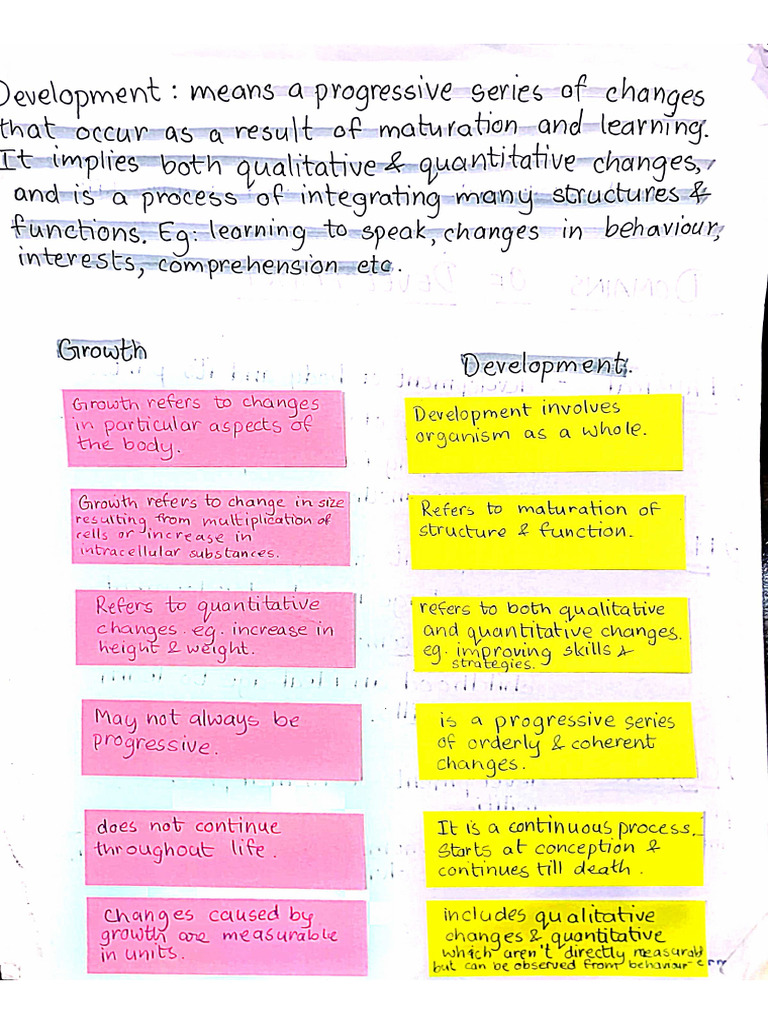 Development: means a progressive series of changes
that occur as a result of maturation and learning.
It implies both qualitative & quantitative changes,
and is a process of integrating many structures &
functions. Eg: learning to speak, changes in behaviour,
interests, comprehension etc.
Growth
Growth refers to changes
in particular aspects of
the body.
Growth refers to change in size
resulting from multiplication of
cells or increase in
intracellular substances.
Refers to quantitative
changes. eg. increase in
height & weight.
May not always be
progressive.
does not continue
throughout life.
changes caused by
growth are measurable
in units.
Development.
Development involves
organism as a whole.
Refers to maturation of
structure & function.
refers to both qualitative
and quantitative changes.
eg. improving skills &
strategies.
is a progressive series
of orderly & coherent
changes.
It is a continuous process.
starts at conception &
continues till death.
includes qualitative
changes & quantitative
which aren't directly measurabl
but can be observed from behaviour